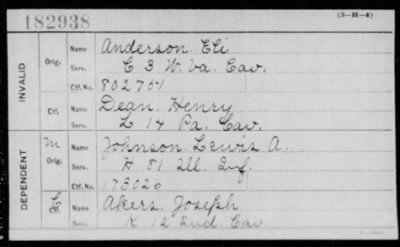 182938
(3-H-4)
INVALID
Orig.
Name Anderson Eli
Serv. C 3 W. Va. Cav.
Ctf. No. 802704
Ctf.
Name Dean, Henry
Serv. L 14 Pa. Cav.
DEPENDENT
M
Orig.
Name Johnson Lewis A.
Serv. H 81 Ill. Inf.
Ctf. No. 173026
Name Akers, Joseph
Serv. K 12 Ind. Cav